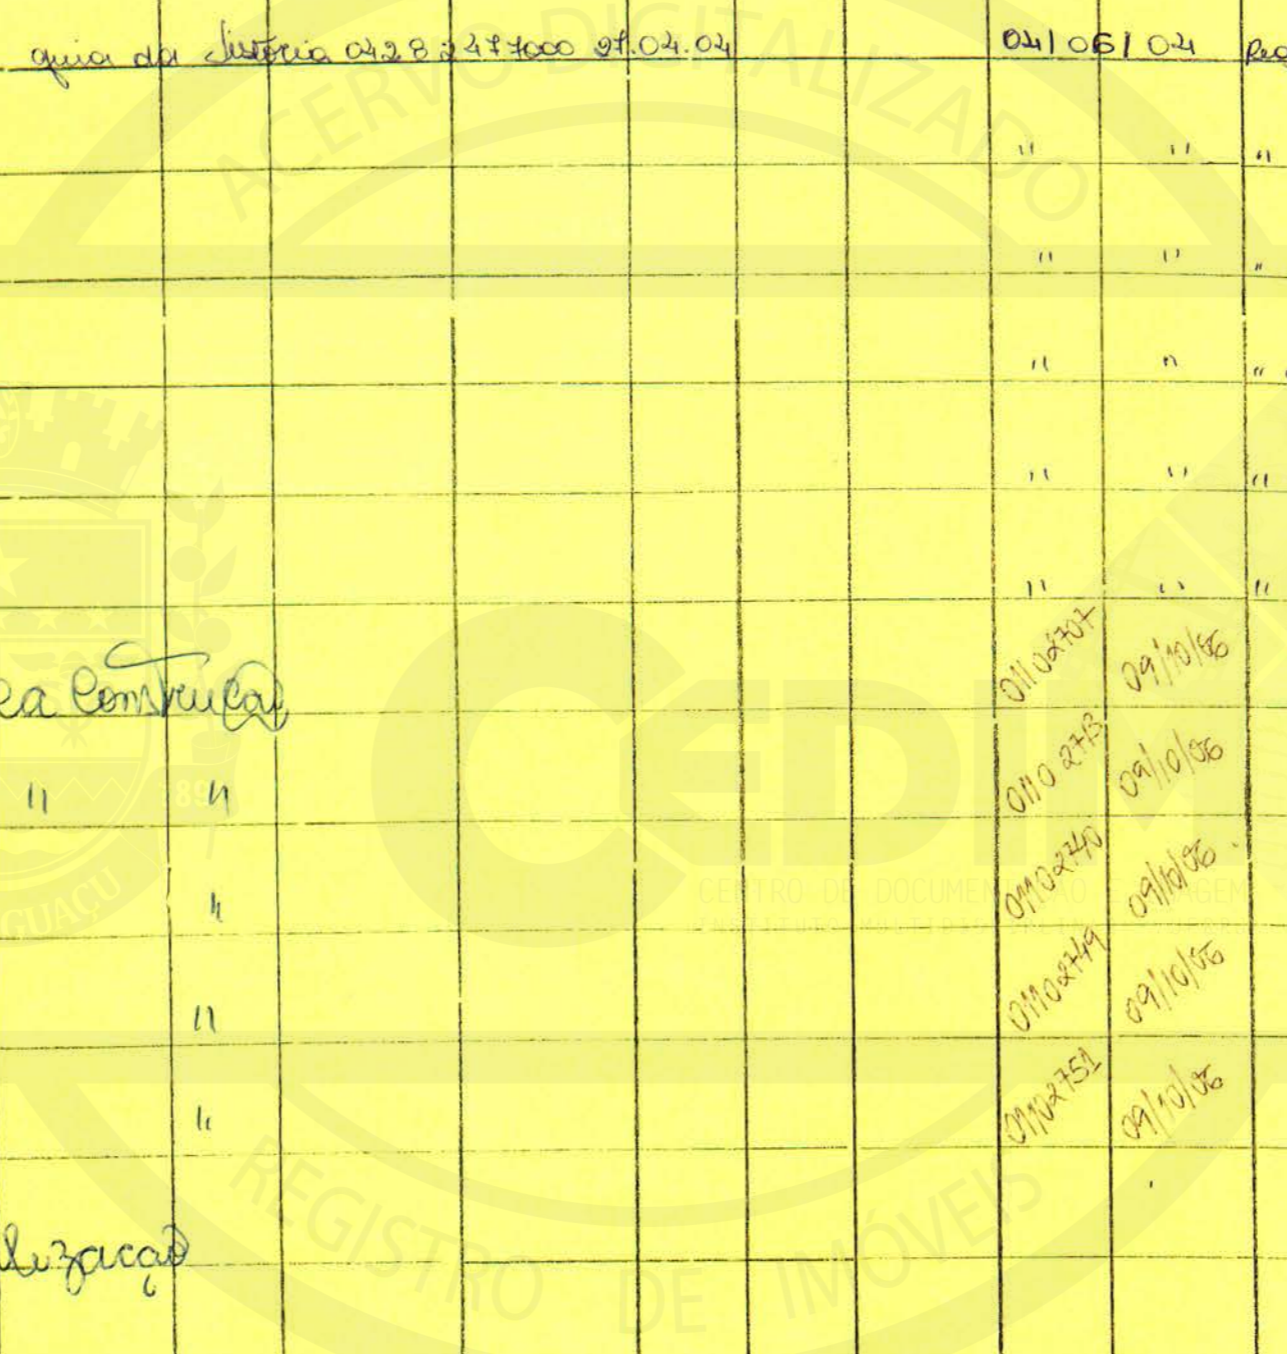 guia da vistoria 0428 2477000 27.04.04 04/06/04
" " "
" " "
" " "
" " "
" " "
ca Construção 01102707 09/10/06
" " 01102713 09/10/06
" 01102740 09/10/06
" 01102749 09/10/06
" 01102751 09/10/06
lização
ACERVO DIGITALIZADO
CEDIM
CENTRO DE DOCUMEN
GUAÇU
89
REGISTRO DE IMÓVEIS